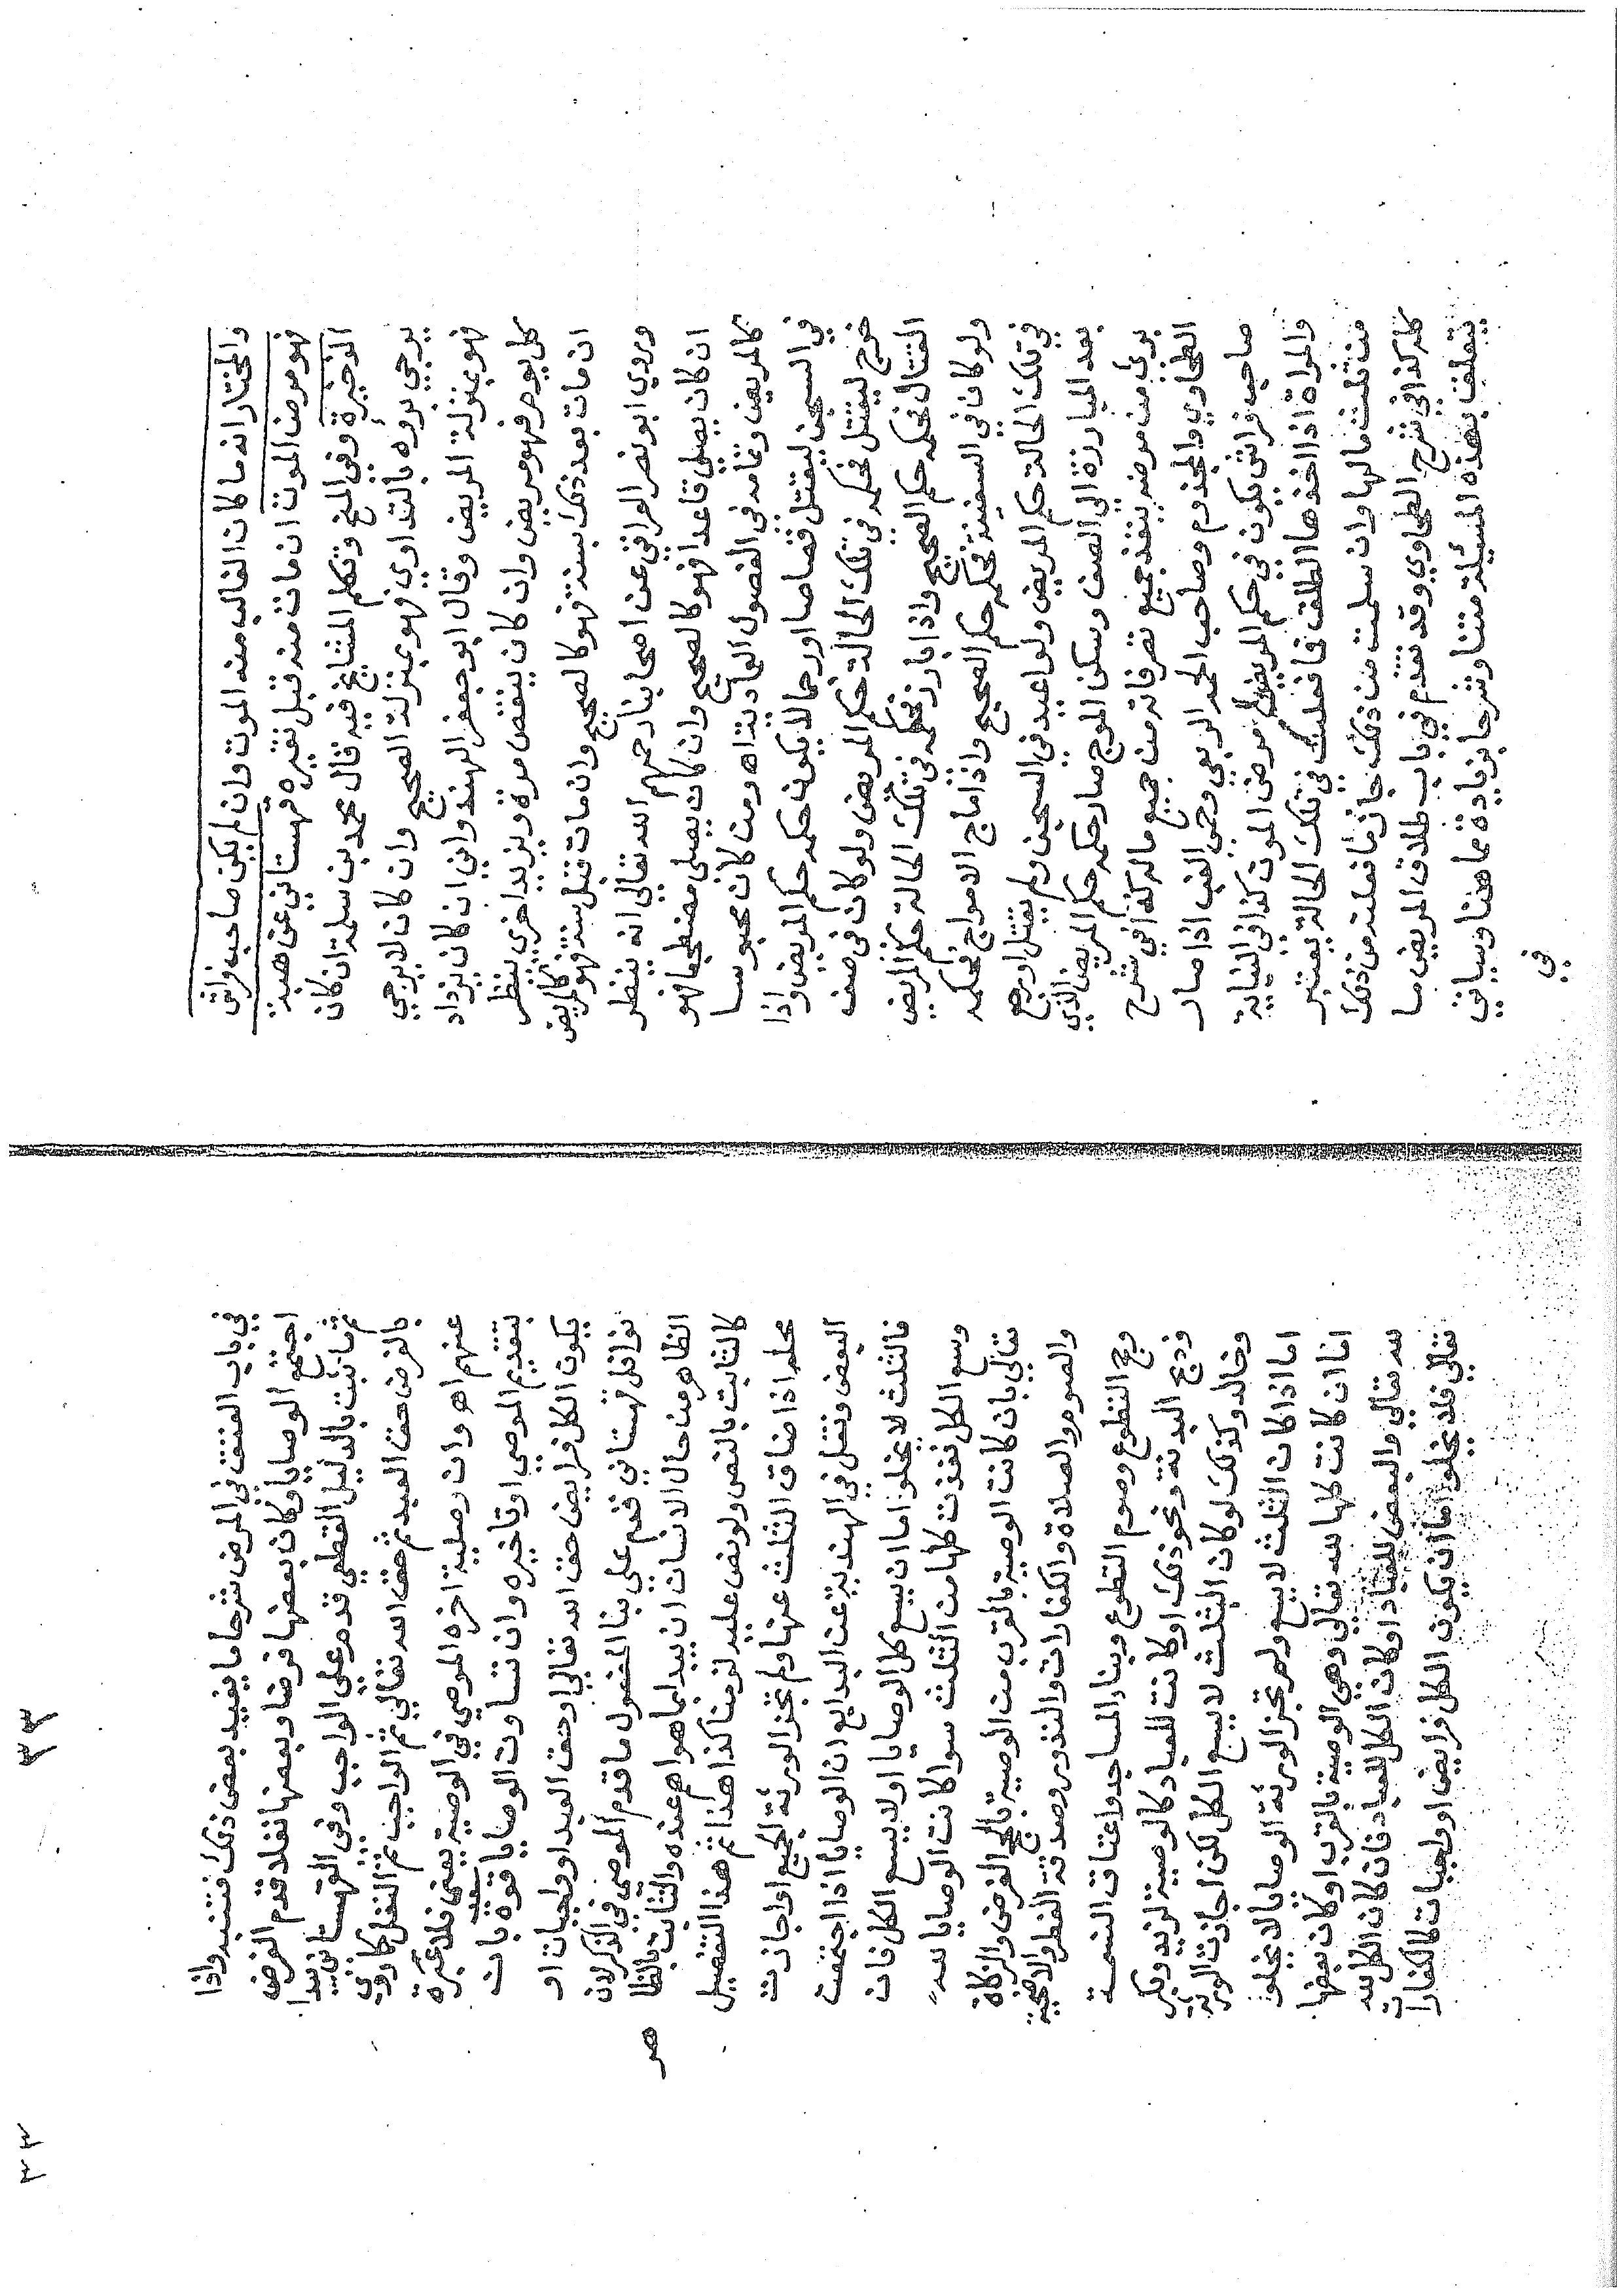 والمختار انه ما كان الغالب منه الموت وان لم يكن صاحب فراش
فهو مرض الموت ان مات منه قبل تغيره قهستاني عن هبة
الذخيرة وفي المنح وتكلم المشايخ فيه قال محمد بن سلمة ان كان
يرجي برؤه بالتداوي فهو بمنزلة الصحيح وان كان لا يرجي
فهو بمنزلة المريض وقال ابو جعفر الهندواني ان كان يزداد
كل يوم فهو مريض وان كان ينتقص مرة ويزيد اخري ينظر
ان مات بعد ذلك بسنة فهو كالصحيح وان مات قبل سنة فهو كالمريض
وروي ابو نصر العراقي عن اصحابنا رحمهم الله تعالي انه ينظر
ان كان يصلي قاعدا فهو كالصحيح وان كان يصلي مضطجعا فهو
كالمريض وتمامه في الفصول العمادية اه ومن كان محبوسا
في السجن ليقتل قصاصا او رجما لا يكون حكمه حكم المريض واذا
خرج ليقتل فحكمه في تلك الحالة حكم المريض ولو كان في صف
القتال فحكمه حكم الصحيح واذا بارز فحكمه في تلك الحالة حكم المريض
ولو كان في السفينة فحكمه حكم الصحيح واذا ماج الامواج فحكمه
في تلك الحالة حكم المريض ولو اعيد في السجن ولم يقتل او رجع
بعد المبارزة الي الصف وسكن الموج صار حكمه حكم المريض الذي
بري من مرضه ينفذ جميع تصرفاته من جميع ماله كذا في شرح
الطحاوي والمجذوم وصاحب الحمى الربعي وحمى الغب اذا صار
صاحب فراش يكون في حكم المريض مرض الموت كذا في النهاية
والمراة اذا اخذها الطلق فما فعلت في تلك الحالة يعتبر
من ثلث مالها وان سلمت من ذلك جاز ما فعلته من ذلك
كله كذا في شرح الطحاوي وقد تقدم في باب طلاق المريض ما
يتعلق بهذه المسئلة متنا وشرحا بزيادة عما هنا وسياتي
في
في باب العتق في المرض شرحا ما يفيد بعض ذلك فتنبه واذا
اجتمع الوصايا وكان بعضها فرضا وبعضها نفلا قدم الفرض
ثم ما ثبت بالدليل القطعي قدم علي الواجب وفي القهستاني يبدا
بالفرض حق العبد ثم حق الله تعالي ثم الواجب ثم النفل كما روي
عنهم اه وان وصلية اخره الموصي في الوصية يعني فلا عبرة
بتقديم الموصي او تاخيره وان تساوت الوصايا قوة بان
يكون الكل فرايض حق الله تعالي او حق العبد او واجبات او
نوافل قهستاني قدم علي بنا المفعول ما قدم الموصي في الذكر لان
الظاهر من حال الانسان ان يبدا بما هو اهم عنده والثابت بالظا
هر
كالثابت بالنص ولو نص عليه لزمنا كذا هذا ثم هذا التفصيل
محله اذا ضاق الثلث عنها ولم تجز الورثة الجميع او اجازت
البعض ونقل في الهندية عن البدايع ان الوصايا اذا اجتمعت
فالثلث لا يخلوا اما ان يسع كل الوصايا او لا يسع الكل فان
وسع الكل نفذت كلها من الثلث سوا كانت الوصايا لله
تعالي بان كانت الوصية بالقرب من الوصية بالحج الفرض والزكاة
والصوم والصلاة والكفارات والنذور وصدقة الفطر والاضحية
وحج التطوع وصوم التطوع وبناء المساجد واعتاق النسمة
وذبح البدنة ونحو ذلك او كانت للعباد كالوصية لزيد وبكر
وخالد وكذلك لو كان الثلث لا يسع الكل لكن اجازت الورثة
اما اذا كان الثلث لا يسع ولم تجز الورثة الوصايا لا يخلو
اما ان كانت كلها لله تعالي وهي الوصية بالقرب او كان بعضها
لله تعالي والبعض للعباد او كان الكل للعباد فان كان الكل لله
تعالي فلا يخلوا اما ان يكون الكل فرايض او واجبات كالكفارات
٣٣
٣٣